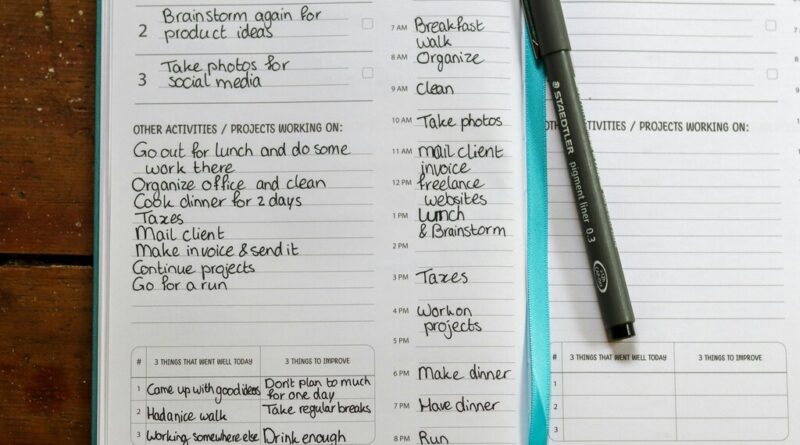 2 Brainstorm again for
product ideas
3 Take photos for
social media
OTHER ACTIVITIES / PROJECTS WORKING ON:
Go out for lunch and do some
work there
Organize office and clean
Cook dinner for 2 days
Taxes
Mail client
Make invoice & send it
Continue projects
Go for a run
# 3 THINGS THAT WENT WELL TODAY 3 THINGS TO IMPROVE
1 Came up with good ideas Don't plan to much
for one day
2 Had a nice walk Take regular breaks
3 Working somewhere else Drink enough
7 AM Breakfast
walk
8 AM Organize
9 AM Clean
10 AM Take photos
11 AM Mail client
invoice
12 PM freelance
websites
1 PM Lunch
& Brainstorm
2 PM
3 PM Taxes
4 PM Work on
projects
5 PM
6 PM Make dinner
7 PM Have dinner
8 PM Run
STAEDTLER pigment liner 0.3
ACTIVITIES / PROJECTS WORKING ON:
# 3 THINGS THAT WENT WELL TODAY 3 THINGS TO IMPROVE
1
2
3